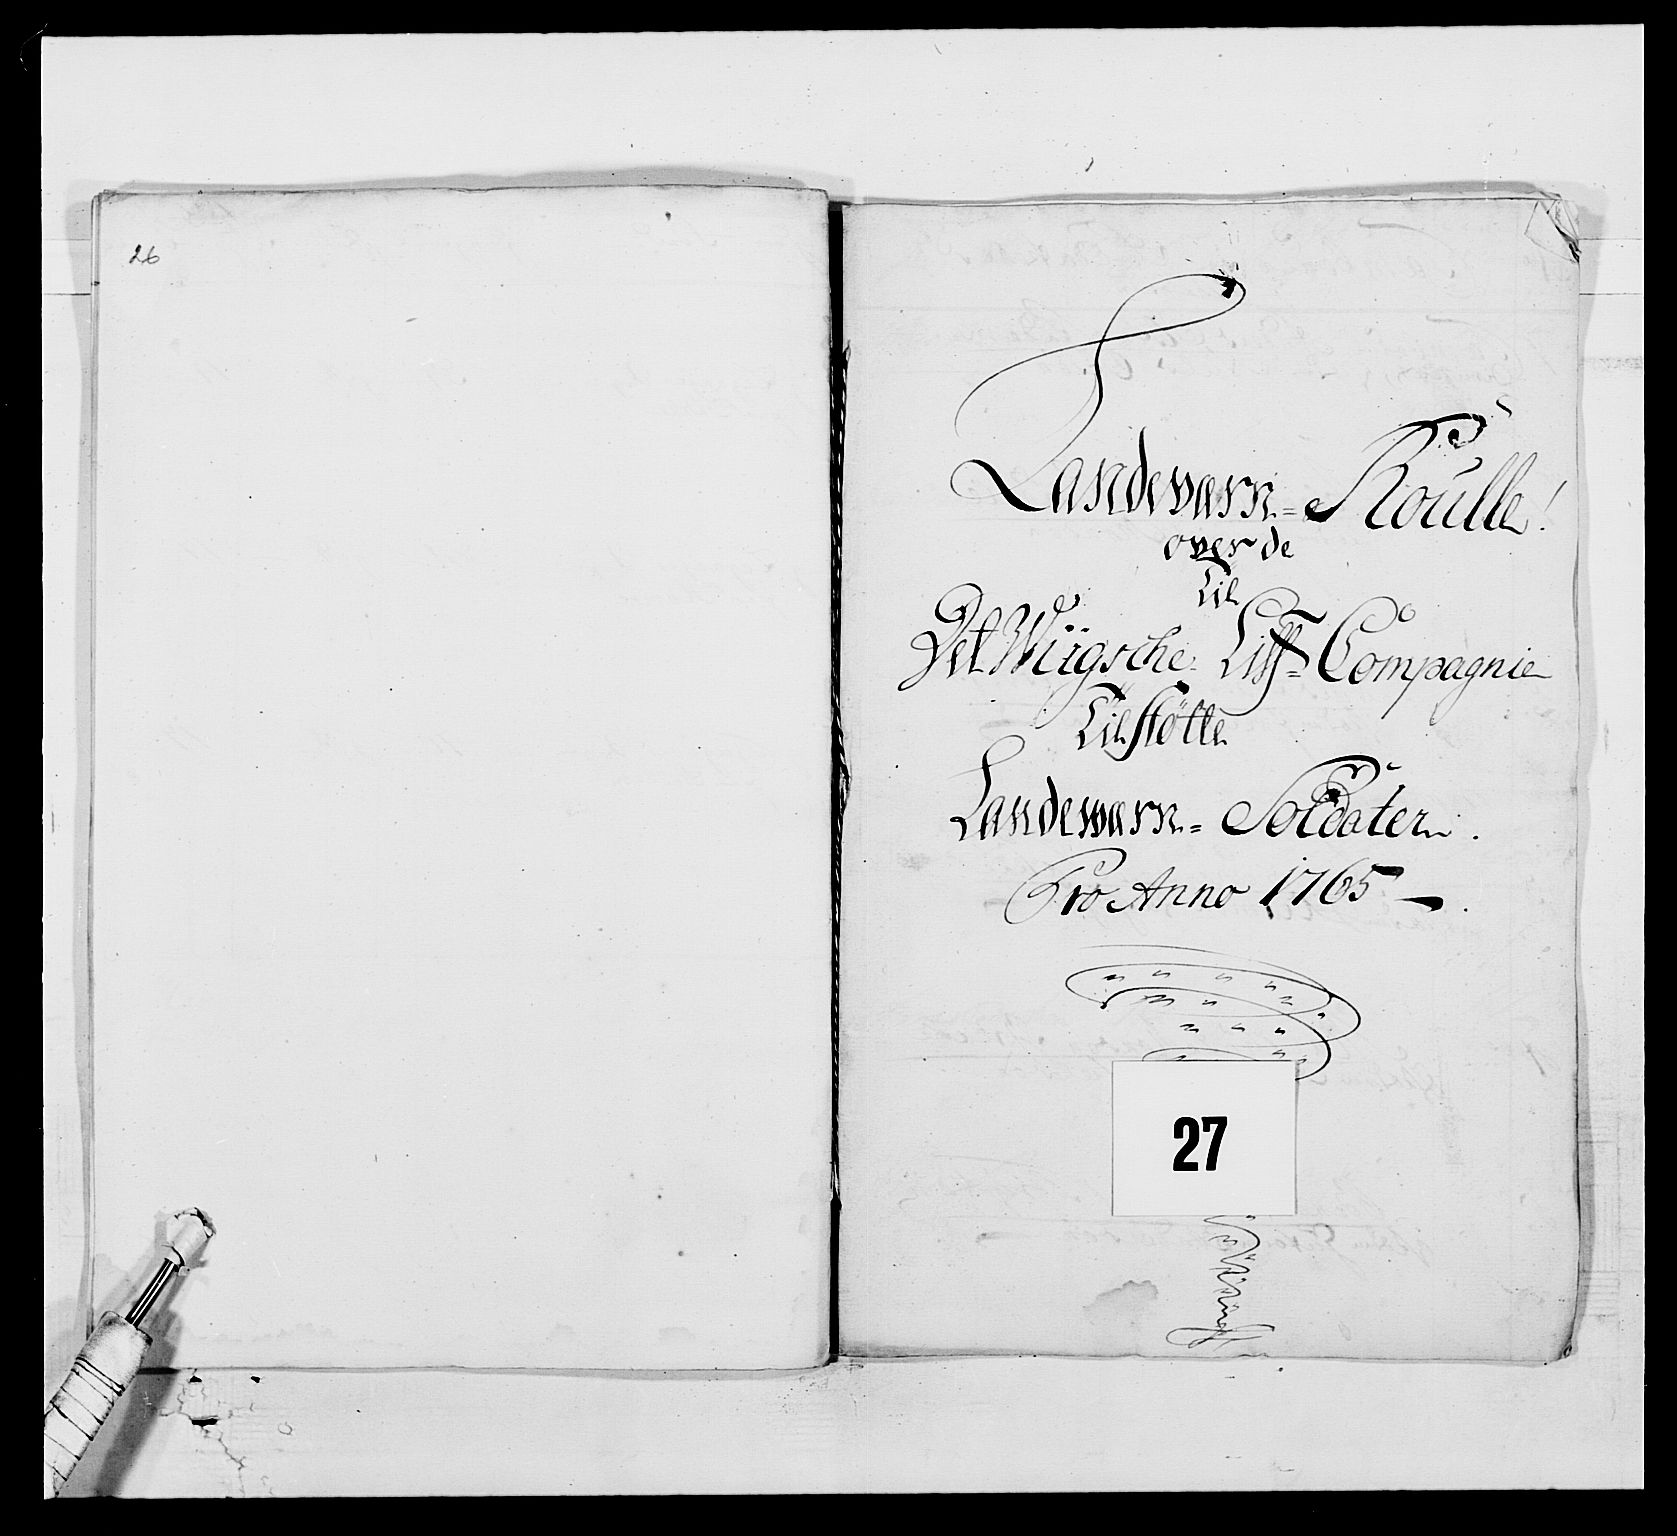 26
Landeværn=Roulle!
over de
Til
Det Wiigsche Liff=Compagnie
Til stötte
Landeværn=Soldater.
Pro Anno 1765 —.
27